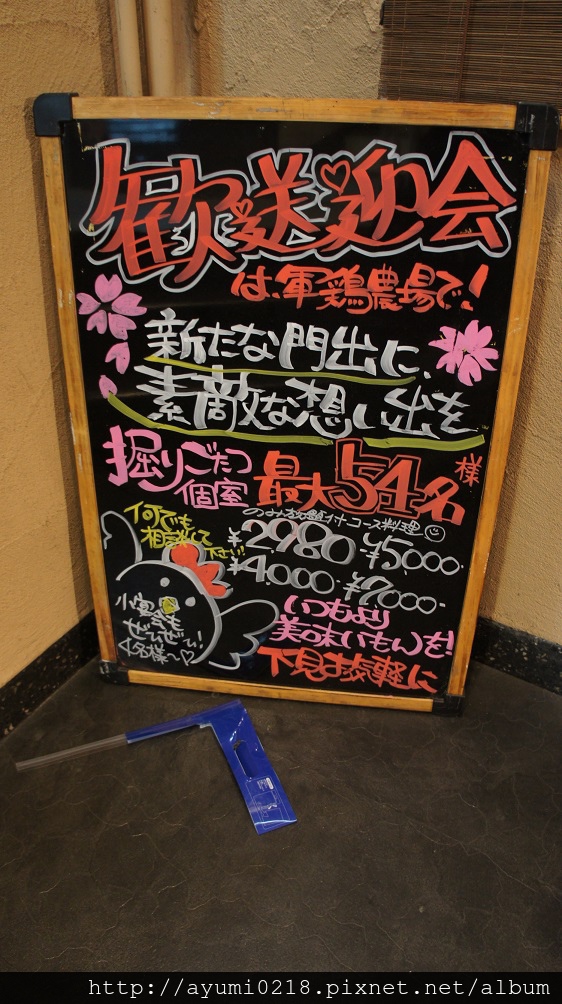 歓送迎会
は、軍鶏農場で!
新たな門出に、
素敵な想い出を
掘りごたつ
個室
最大54名
様
のみ放題付コース料理
何でも
相談して
下さい!
¥2980 ¥5000.
¥4000. ¥7000.
小宴会も
ぜひぜひ!
4名様〜♡
いつもより
美味いもんを!
下見お気軽に
http://ayumi0218.pixnet.net/album